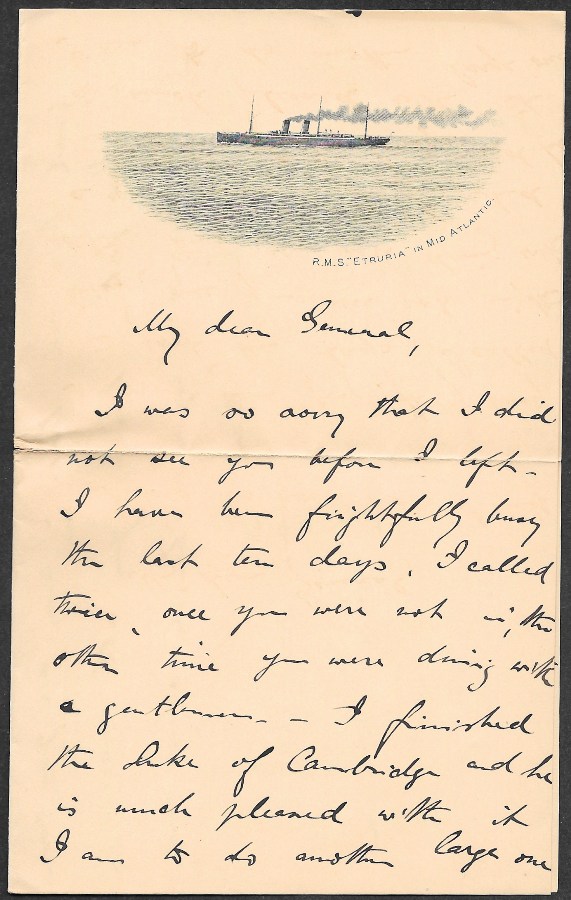 R.M.S "ETRURIA" IN MID ATLANTIC.
My dear General,
I was so sorry that I did
not see you before I left -
I have been frightfully busy
the last ten days. I called
twice, once you were not in, the
other time you were dining with
a gentleman - - I finished
the Duke of Cambridge and he
is much pleased with it
I am to do another large one